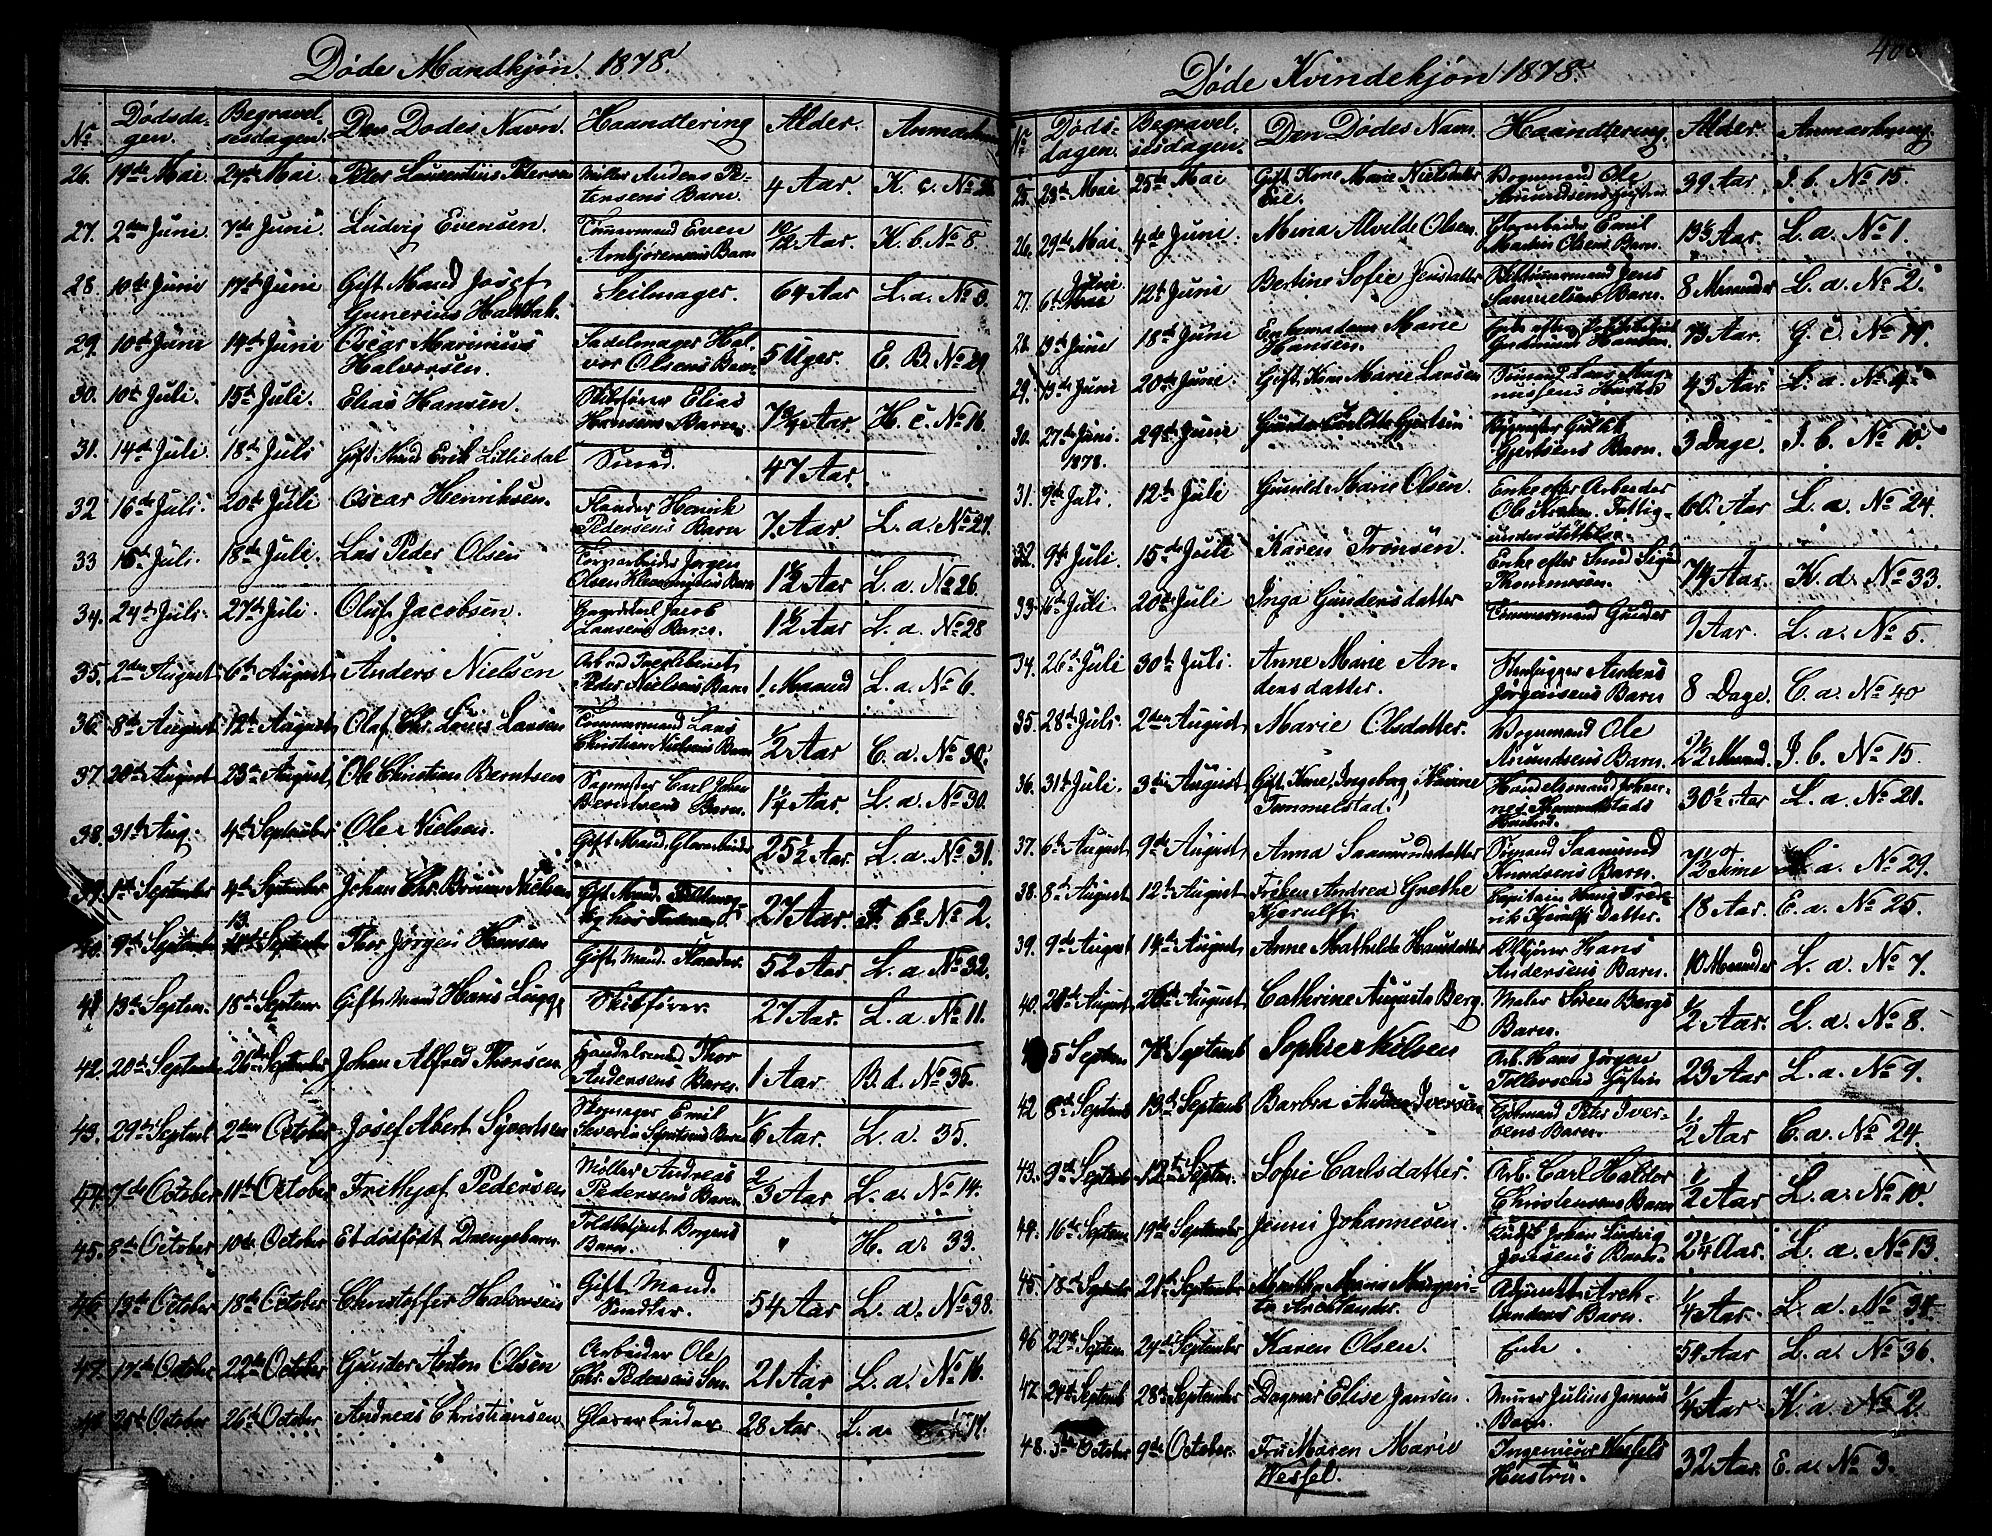 Døde Mandkjøn. 1878.
No Dødsdagen. Begravelsesdagen. Den Dødes Navn. Haandtering Alder.
26. 19de Mai. 24de Mai. Peter Laurentius Petersen Møller Anders Petersens Barn. 4 Aar. K. c. No
27. 2den Juni. 7de Juni. Ludvig Evensen. Tømmermand Even Arnbjørensens Barn 10/12 Aar. K. b. No 8.
28. 10de Juni 17de Juni Gift Mand Josef Gunerius Seilmager. 64 Aar L. a. No 3.
29. 10de Juni 14de Juni Oscar Marinius Halvorsen. Sadelmager Halvor Olsens Barn 5 Uger. E. B. No 29
30. 10de Juli. 15de Juli. Elias Hansen. Skibsfører Elias Hansens Barn. 7 3/4 Aar. H. c. No 16.
31. 14de Juli. 18de Juli Gift Mand Erik Lilliedal Smed. 47 Aar.
32 16de Juli. 20de Juli Oscar Henriksen. Flander Henrik Pedersens Barn 7 Aar. L. a. No 27.
33 15de Juli. 18de Juli. Lars Peder Olsen Jørgen Olsen Barn 1 1/2 Aar L. a. No 26.
34. 24de Juli. 27de Juli. Oluf Jacobsen. Jacob Larsens Barn. 1 1/2 Aar L. a. No 28
35. 2den August 6te August Anders Nielsen Peder Nielsens Barn 1 Maaned L. a. No 6.
36. 8de August 12te August Olaf Chr. Louis Larsen Tømmermand Lars Christian Nielsens Barn 1/2 Aar C. a. No 30.
37. 20de August 23de August Ole Christian Berntsen Sagmester Carl Johan Berntsens Barn. 1 1/4 Aar. L. a. No 30.
38. 31te Aug. 4de September Ole Nielsen. Gift Mand. Glarearbeider 25 1/2 Aar. L. a. No 31.
39. 1ste September 4de September Johan Chr. Bruun Nielsen Gift Mand. 27 Aar F. b. No 2.
40. 9de September 13 September Thor Jørgen Hansen Gift Mand. Flander. 52 Aar L. a. No 32.
41 13de Septem. 18de Septem. Gift Mand Hans Lugg Skibsfører. 27 Aar. L. a. No 11.
42. 20de Septem 26de September Johan Alfred Thorsen Handelsmand Thor Andersens Barn. 1 Aar B. d. No 35.
43. 29de Septemb 2den October Josef Abert Syvertsen Skomager Emil Severin Syvertsens Barn 1/6 Aar. L. a. 35.
44. 7de October 11te October Frithjof Pedersen Møller Andreas Pedersens Barn 2/3 Aar L. a. No 14.
45. 8de October 10de October Et dødfødt Drengebarn. Toldbetjent Borgens Barn. " H. a. 33.
46. 13de October 18de October Christoffer Halvorsen Gift Mand. Snedker. 54 Aar L. a. No 38.
47. 17de October 22de October Gunder Anton Olsen Arbeider Ole Chr. Pedersens Søn. 21 Aar L. a. No 16.
48. 21de October 26de October Andreas Christiansen Glarearbeider 28 Aar. L. a. 17.
Døde Kvindekjøn 1878.
No Dødsdagen. Begravelsesdagen. Den Dødes Navn. Haandtering. Alder. Anmærkning.
25. 23de Mai 25de Mai Gift Kone Marie Nielsdatter Eie. Vognmand Ole Amundsens Hustru 39 Aar J. b. No 15.
26. 29de Mai 4de Juni. Mina Alvilde Olsen. Glarearbeider Emil Martin Olsens Barn. 13 1/2 Aar. L. a. No 1.
27. 6te Juni 12te Juni Bertine Sofie Jensdatter Skibtømmermand Jens Samuelsens Barn. 8 Maaneder L. a. No 2.
28. 13de Juni 18de Juni Enkemadam Marie Hansen. Enke efter Gudmund Hansen. 73 Aar. G. c. No 11.
29. 13de Juni 20de Juni. Gift Kone Marie Larsen Tømand Lars Magnussens Hustru 45 Aar. L. a. No 4.
30. 27de Juni. 1878. 29de Juni Gunda Gjertsen Gjertsens Barn. 3 Dage. J. b. No 10.
31. 9de Juli. 12te Juli Gunild Marie Olsen. Enke efter Arbeider Ole Fattigunderstøttelse. 60 Aar L. a. No 24.
32. 9de Juli 15de Juli Karen Tronsen. Enke efter Smed 74 Aar. K. d. No 33.
33. 16de Juli. 20de Juli Inga Gundersdatter Tømmermand Gunder 9 Aar. L. a. No 5.
34. 26de Juli 30te Juli. Anne Marie Andersdatter. Stenhugger Anders Jørgensens Barn 8 Dage. C. a. No 40
35. 28de Juli. 2den August Marie Olsdatter. Vognmand Ole Amundsens Barn. 2 1/2 Maaned J. b. No 15.
36. 31te Juli. 3die August Gift Kone Ingeborg Marine Tømmelstad. Handelsmand Johannes Tømmelstads Hustru. 30 1/2 Aar L. a. No 21.
37. 6te August 9de August Anna Saamundsdatter Sømand Saamund Knudsens Barn. 7 1/2 Time L. a. No 29.
38. 8de August 12te August Friken Andrea Grethe Kjerulff. Capitain Hans Frederik Kjerulfs Datter. 18 Aar. E. a. No 25.
39. 9de August 14de August Anne Mathilde Hansdatter Hans Andersens Barn. 10 Maaneder L. a. No 7.
40. 20de August 26de August Cathrine Augusta Berg. Maler Søren Bergs Barn. 1/2 Aar. L. a. No 8.
5 Septem 7de Septemb Sophie Nielsen Arb. Hans Jørgen Tellefsens Hustru 23 Aar L. a. No 9.
42 8de Septemb 13de Septemb Barbra Andrea Iversen Sømand Peter Iversens Barn. 1/2 Aar C. a. No 24.
43. 9de Septemb 12te Septem. Sofie Carlsdatter. Arb. Carl Haldor Christensens Barn 1/2 Aar L. a. No 10
44. 16de Septem 19de September Jenni Johannesen. Johan Ludvig Jensens Barn. 2 1/4 Aar. L. a. No 13.
45. 18de September 21de September Marthe Marie Margerite Arctander. Adjunkt Arctanders Barn. 1/4 Aar. L. a. No 34.
46 22de Septem 24de September Karen Olsen. Enke. 54 Aar L. a. No 36.
47. 24de Septemb 28de September Dagmar Elise Jansen. Murer Julius Jansens Barn. 1/4 Aar K. a. No 2.
48. 3die October 9de October. Fru Maren Marie Wessel. Ingeniør Wessels Hustru. 32 Aar. E. d. No 3.